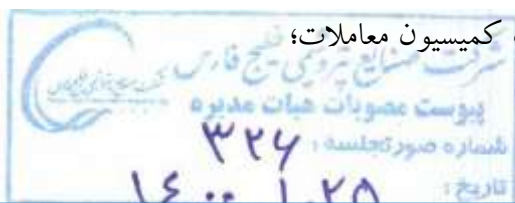 کمیسیون معاملات؛
شرکت صنایع پتروشیمی خلیج فارس
پیوست مصوبات هیات مدیره
شماره صورتجلسه : ۳۲۶
تاریخ : ۱۴۰۰۱.۲۵